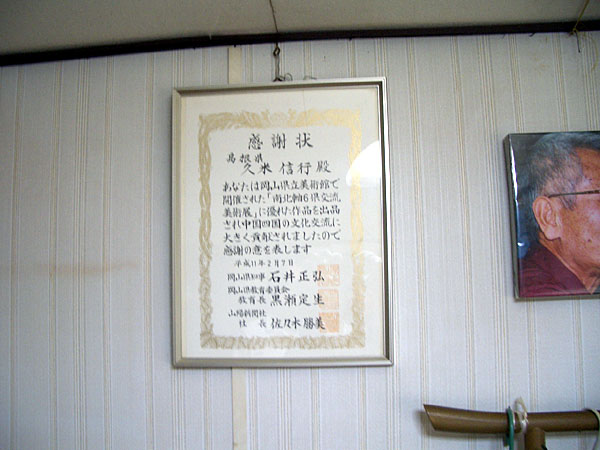 感謝状
島根県
久米 信行 殿
あなたは岡山県立美術館で
開催された「南北軸6県交流
美術展」に優れた作品を出品
され中国四国の文化交流に
大きく貢献されましたので
感謝の意を表します
平成11年2月7日
岡山県知事 石井正弘
岡山県教育委員会
教育長 黒瀬定生
山陽新聞社
社長 佐々木勝美